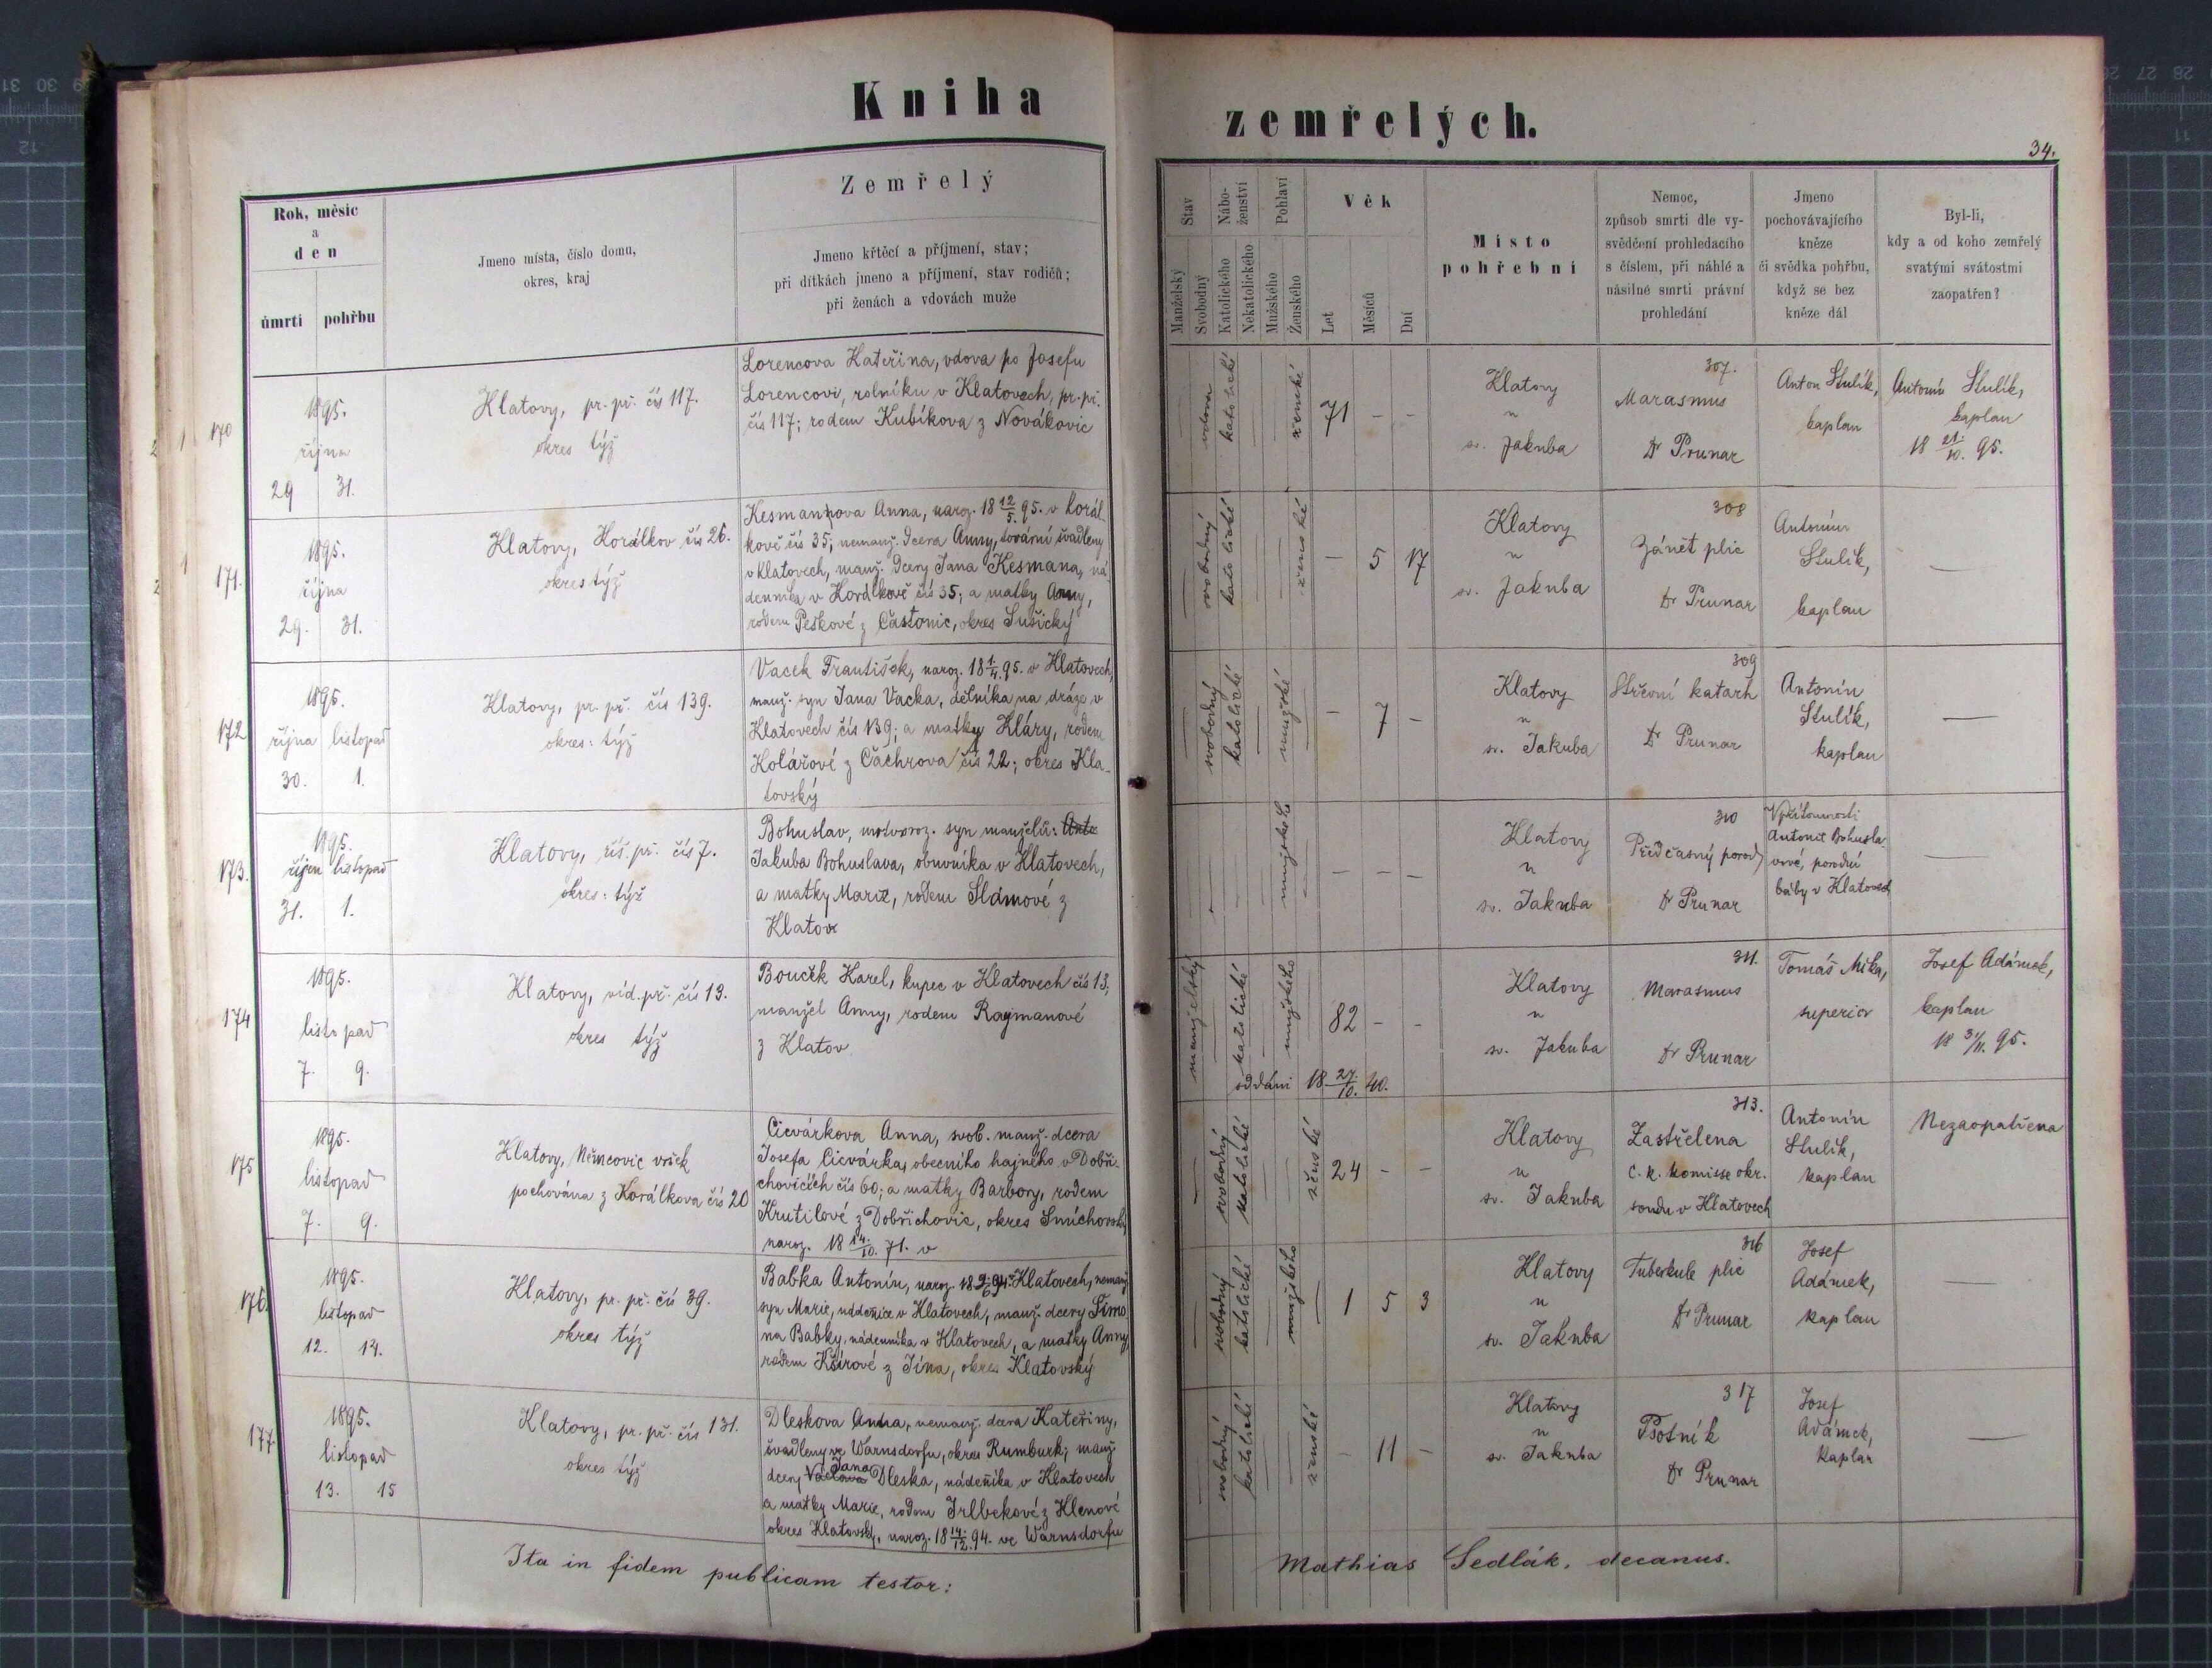 Kniha
zemřelých.
34.
Rok, měsíc
a
den
úmrtí
pohřbu
Jmeno místa, číslo domu,
okres, kraj
Zemřelý
Jmeno křtěcí a příjmení, stav;
při dítkách jmeno a příjmení, stav rodičů;
při ženách a vdovách muže
Stav
Manželský
Svobodný
Nábo-
ženství
Katolického
Nekatolického
Pohlaví
Mužského
Ženského
Věk
Let
Měsíců
Dní
Místo
pohřební
Nemoc,
způsob smrti dle vy-
svědčení prohledacího
s číslem, při náhlé a
násilné smrti právní
prohledání
Jmeno
pochovávajícího
kněze
či svědka pohřbu,
když se bez
kněze dál
Byl-li,
kdy a od koho zemřelý
svatými svátostmi
zaopatřen?
170
1895.
října
29 31.
Klatovy, pr. př. čís 117.
okres týž
Lorencova Kateřina, vdova po Josefu
Lorencovi, rolníku v Klatovech, pr. př.
čís 117; rodem Kubíkova z Novákovic
vdova
katolické
ženské
71 - -
Klatovy
u
sv. Jakuba
307.
Marasmus
Dr Prunar
Anton Stulík,
kaplan
Antonín Stulík,
kaplan
18 21/10. 95.
171.
1895.
října
29. 31.
Klatovy, Korálkov čís 26.
okres týž
Kesmanova Anna, naroz. 18 12/5. 95. v Korál-
kově čís 35; nemanž. dcera Anny, tovární švadleny
v Klatovech, manž. dcery Jana Kesmana, ná-
denníka v Korálkově čís 35; a matky Anny,
rodem Peškové z Častonic, okres Sušický
svobodný
katolické
ženské
- 5 17
Klatovy
u
sv. Jakuba
308
Zánět plic
Dr Prunar
Antonín
Stulík,
kaplan
—
172
1895.
října listopad
30. 1.
Klatovy, pr. př. čís 139.
okres: týž
Vacek František, naroz. 18 1/4. 95. v Klatovech,
manž. syn Jana Vacka, dělníka na dráze v
Klatovech čís 139; a matky Kláry, rodem
Kolářové z Čachrova čís 22; okres Kla-
tovský
svobodný
katolické
mužské
- 7 -
Klatovy
u
sv. Jakuba
309
Střevní katarh
Dr Prunar
Antonín
Stulík,
kaplan
—
173.
1895.
říjen listopad
31. 1.
Klatovy, říš. př. čís 7.
okres: týž
Bohuslav, mrtvoroz. syn manželů: Anto
Jakuba Bohuslava, obuvníka v Klatovech,
a matky Marie, rodem Slámové z
Klatov
mužského
- - -
Klatovy
u
sv. Jakuba
310
Předčasný porod
Dr Prunar
V přítomnosti
Antonie Bohusla-
vové, porodní
báby v Klatovech
—
174
1895.
listopad
7. 9.
Klatovy, víd. př. čís 13.
okres týž
Bouček Karel, kupec v Klatovech čís 13,
manžel Anny, rodem Raymanové
z Klatov
manželský
katolické
mužského
82 - -
oddáni 18 27./10. 40.
Klatovy
u
sv. Jakuba
311.
Marasmus
Dr Prunar
Tomáš Mika,
superior
Josef Adámek,
kaplan
18 3/11. 95.
175
1895.
listopad
7. 9.
Klatovy, Němcovic vršek
pochována z Korálkova čís 20
Cicvárkova Anna, svob. manž. dcera
Josefa Cicvárka, obecního hajného v Dobři-
chovicích čís 60; a matky Barbory, rodem
Krutilové z Dobřichovic, okres Smíchovský
naroz. 18 14./10. 71. v
svobodný
katolické
ženské
24 - -
Klatovy
u
sv. Jakuba
313.
Zastřelena
C. k. komisse okr.
soudu v Klatovech
Antonín
Stulík,
kaplan
Nezaopatřena
176.
1895.
listopad
12. 14.
Klatovy, pr. př. čís 39.
okres týž
Babka Antonín, naroz. 18 9/6 94. v Klatovech, nemanž.
syn Marie, nádenice v Klatovech, manž. dcery Šimo-
na Babky, nádenníka v Klatovech, a matky Anny,
rodem Kšírové z Jína, okres Klatovský
svobodný
katolické
mužského
1 5 3
Klatovy
u
sv. Jakuba
316
Tuberkule plic
Dr Prunar
Josef
Adámek,
kaplan
—
177.
1895.
listopad
13. 15
Klatovy, pr. př. čís 131.
okres týž
Dleskova Anna, nemanž. dcera Kateřiny,
švadleny ve Warnsdorfu, okres Rumburk; manž.
dcery Václava Jana Dleska, nádeníka v Klatovech
a matky Marie, rodem Irlbekové z Klenové
okres Klatovský, naroz. 18 14./12. 94. ve Warnsdorfu
svobodný
katolické
ženské
- 11 -
Klatovy
u
sv. Jakuba
317
Psotník
Dr Prunar
Josef
Adámek,
kaplan
—
Ita in fidem publicam testor:
Mathias Sedlák, decanus.